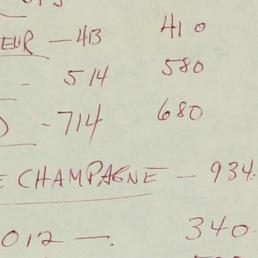 EUR — 413 410
- 514 580
- 714 680
E CHAMPAGNE — 934.
012 —. 340.